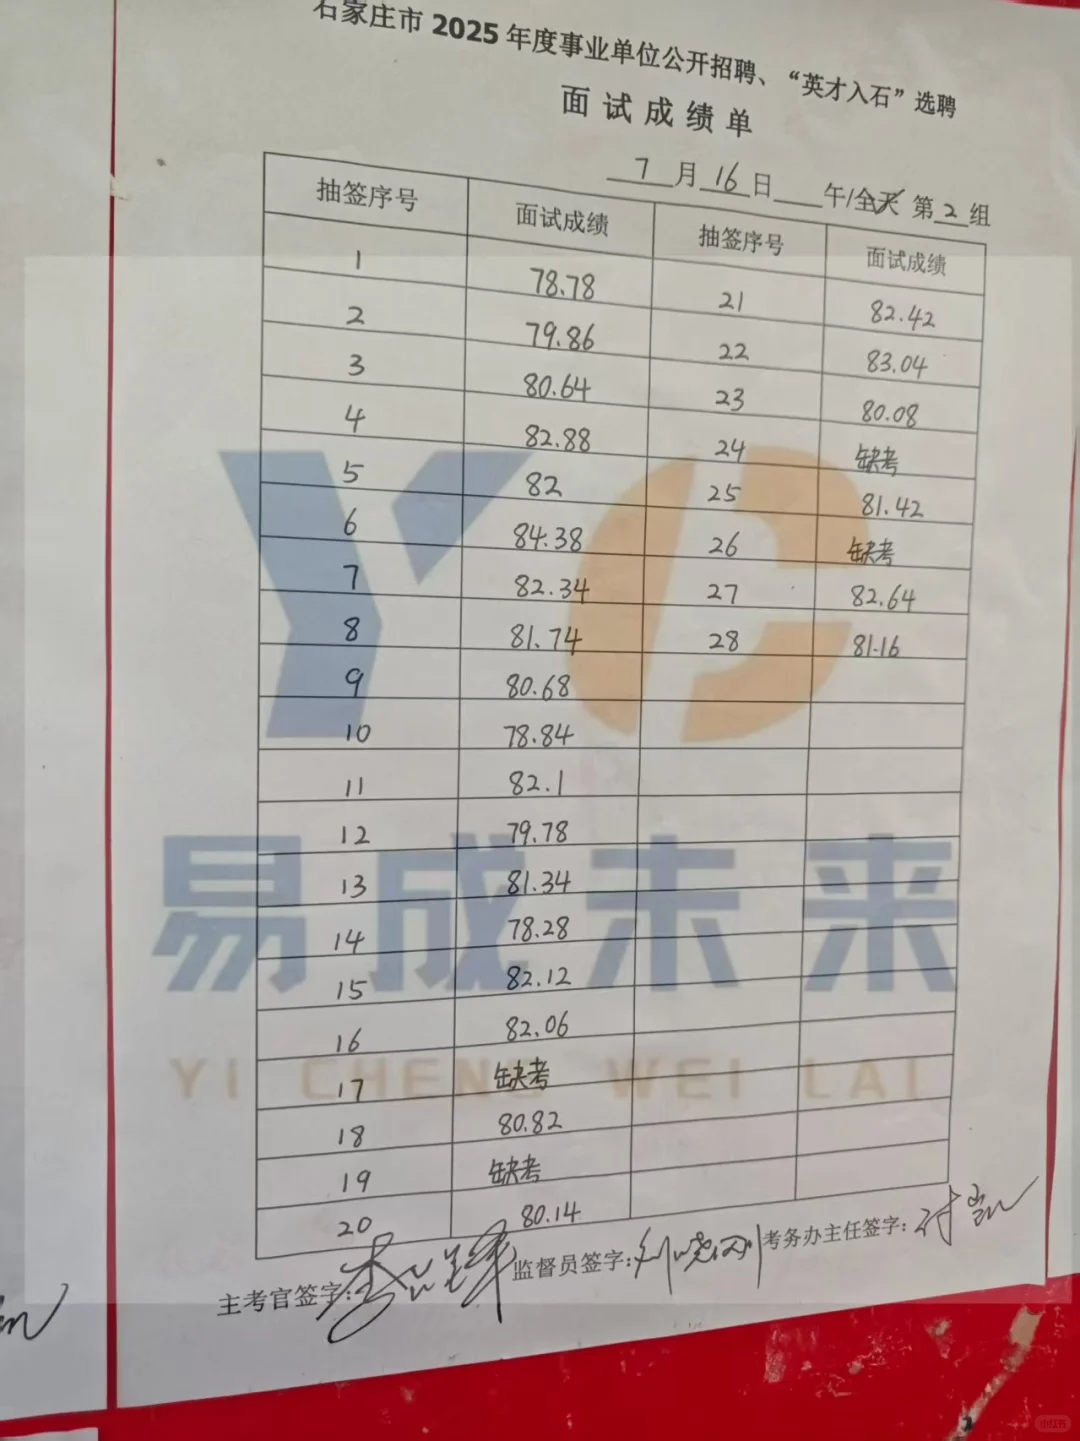 石家庄市 2025 年度事业单位公开招聘、“英才入石”选聘
面试成绩单
7月16日____午/全天 第2组
抽签序号 面试成绩 抽签序号 面试成绩
1 78.78 21 82.42
2 79.86 22 83.04
3 80.64 23 80.08
4 82.88 24 缺考
5 82 25 81.42
6 84.38 26 缺考
7 82.34 27 82.64
8 81.74 28 81.16
9 80.68
10 78.84
11 82.1
12 79.78
13 81.34
14 78.28
15 82.12
16 82.06
17 缺考
18 80.82
19 缺考
20 80.14
主考官签字: 监督员签字: 考务办主任签字:
YC
易成未来
YI CHENG WEI LAI
小红书